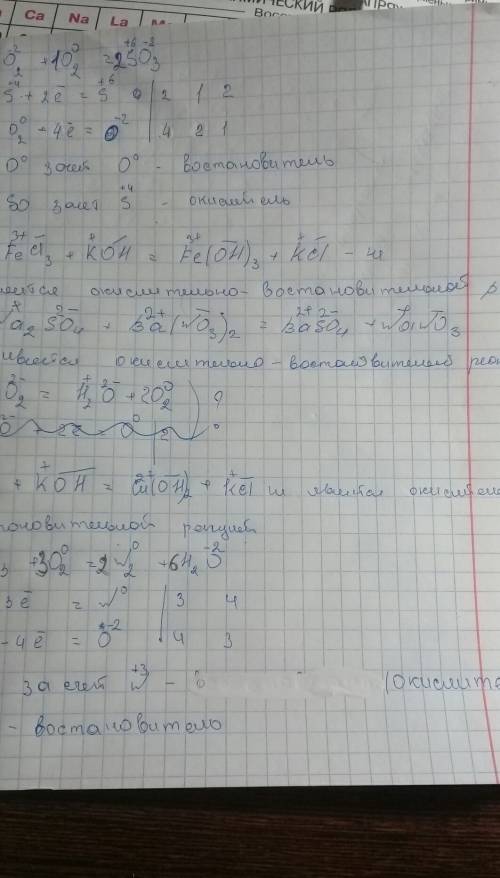 Ca Na La
O₂ + 1O₂⁰ = 2S⁺⁶O₃⁻²
S⁺⁴ + 2ē = S⁺⁶ | 2 1 2
O₂⁰ - 4ē = O⁻² | 4 2 1
O⁰ за счет O⁰ - востановитель
SO за счет S⁺⁴ - окислитель
Fe³⁺Cl₃⁻ + K⁺OH⁻ = Fe³⁺(OH⁻)₃ + K⁺Cl⁻ - н
яется окислительно-востановительной р
a₂⁺SO₄²⁻ + Ba²⁺(NO₃⁻)₂ = Ba²⁺SO₄²⁻ + Na⁺NO₃⁻
является окислительно-востановительной реак
O₂²⁻ = H₂⁺O²⁻ + 2O₂⁰ ) ?
+ K⁺OH⁻ = Cu²⁺(OH⁻)₂ + K⁺Cl⁻ н является окислител
тановительной
3 + 3O₂⁰ = 2N₂⁰ + 6H₂O⁻²
3ē = N⁰ | 3 4
- 4ē = O⁻² | 4 3
за счет N⁺³ - о (окислите
- востановителю